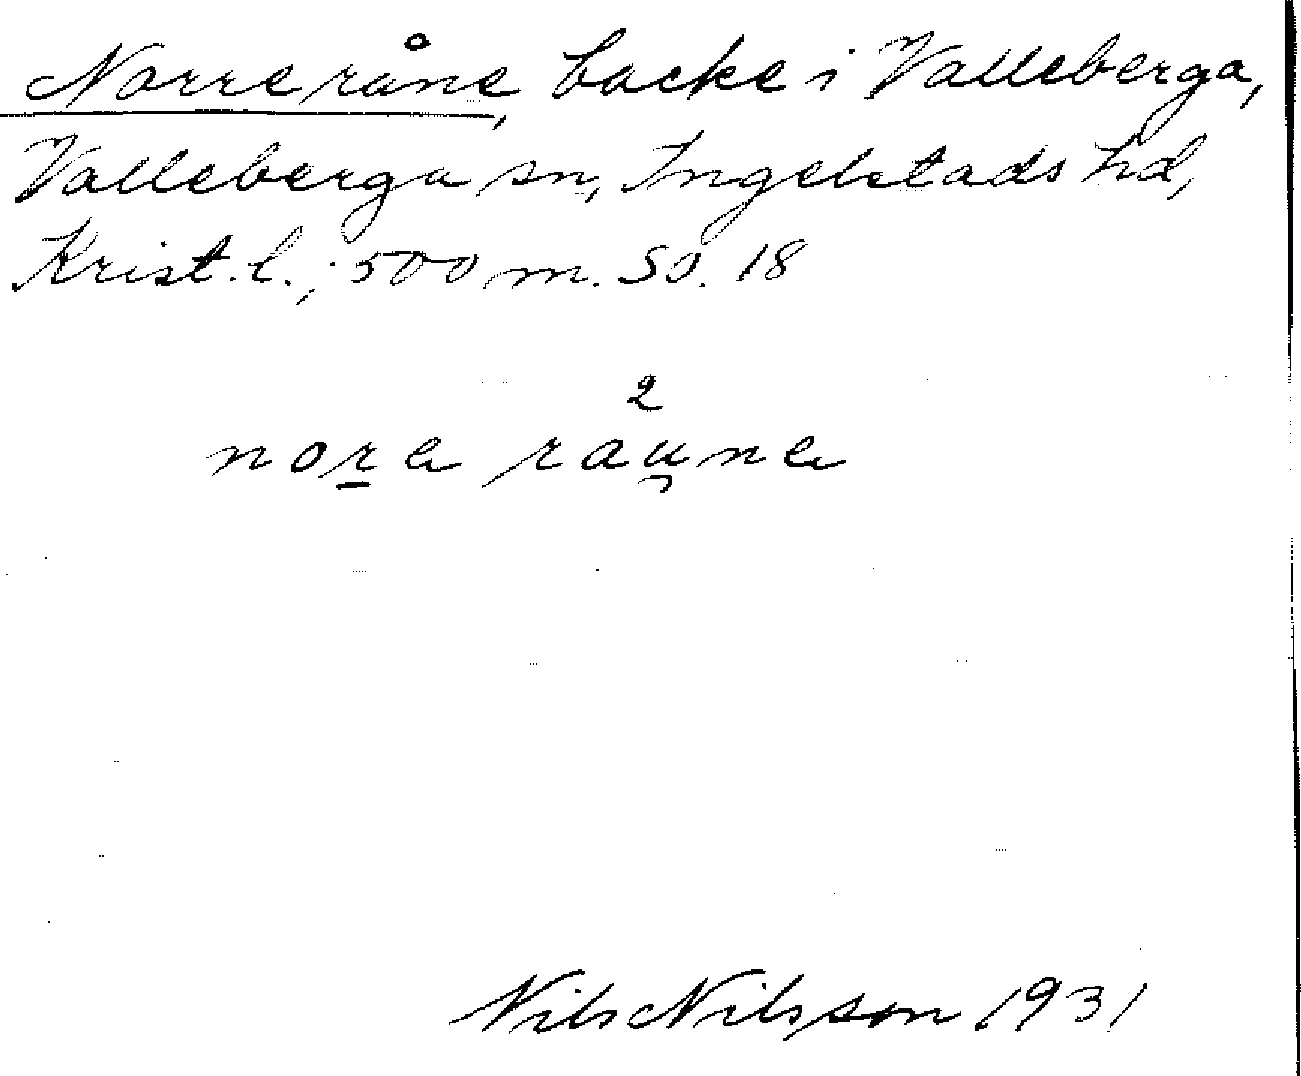 Norre råne, backe i Valleberga,
Valleberga sn, Ingelstads hd,
Krist. l.; 500 m. SO. 18
2
nora rau̯na
Nils Nilsson 1931